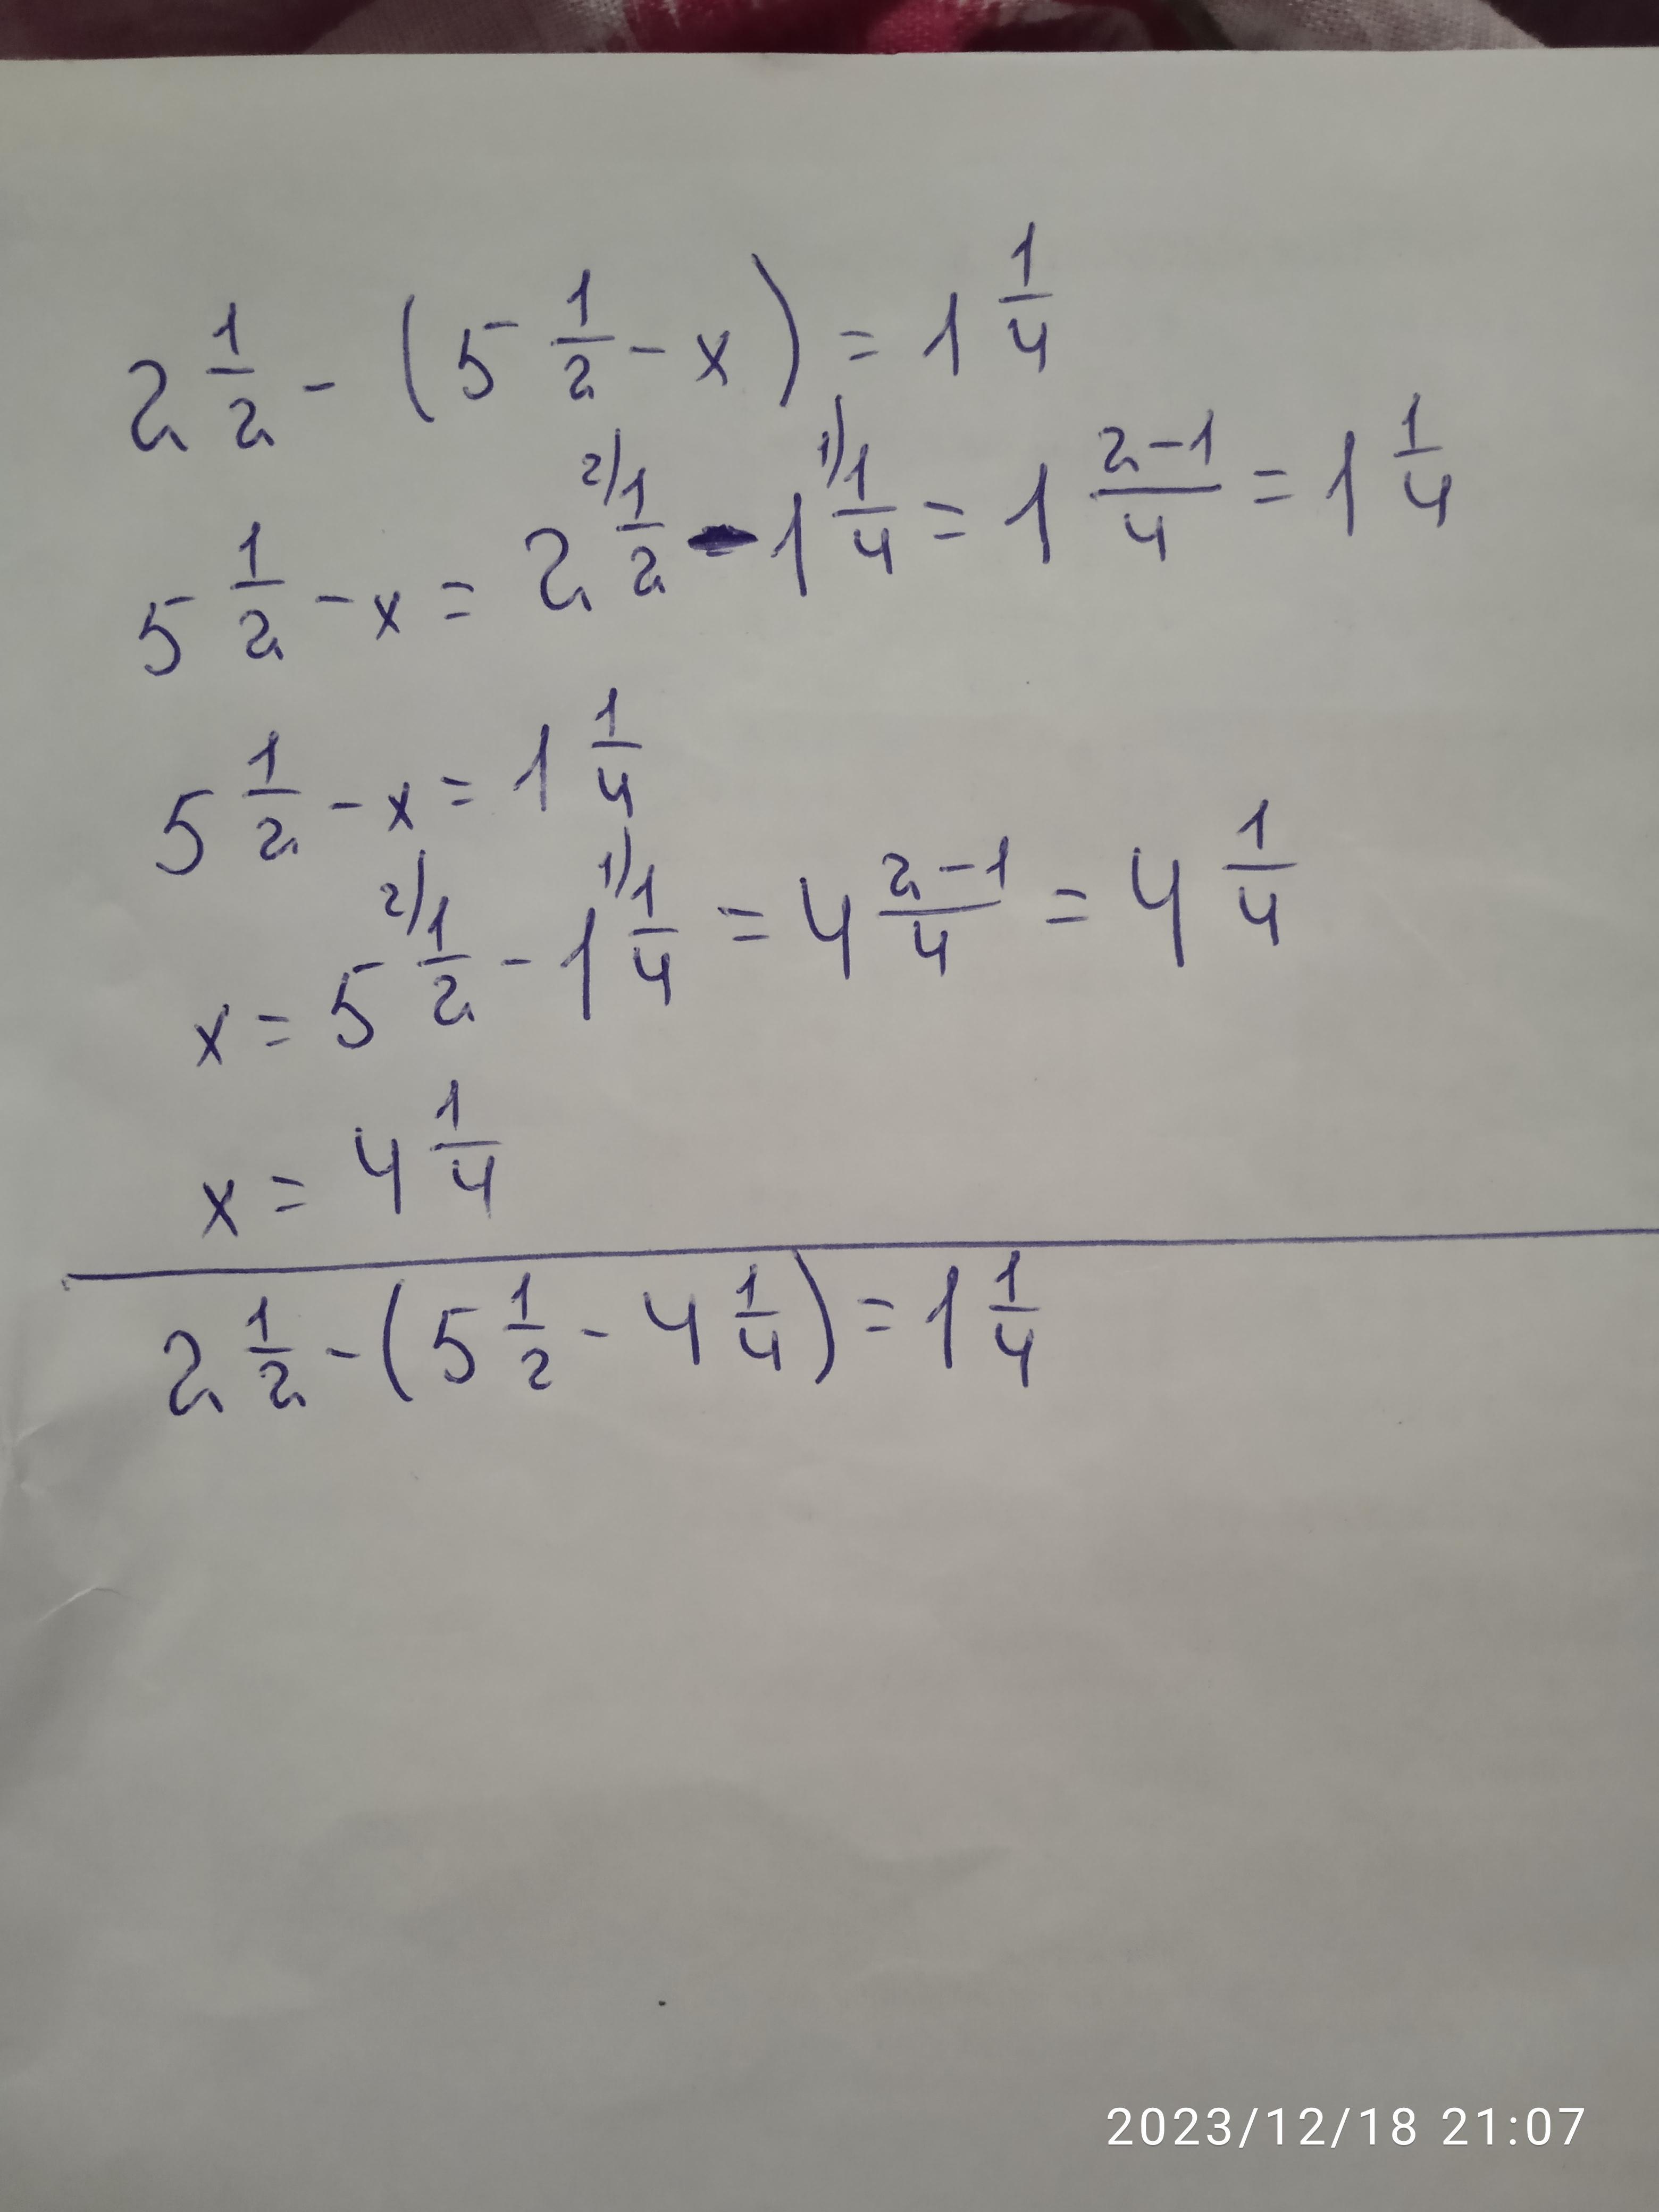 2 1/2 - (5 1/2 - x) = 1 1/4
5 1/2 - x = 2 2/1/2 - 1 1/1/4 = 1 2-1/4 = 1 1/4
5 1/2 - x = 1 1/4
x = 5 2/1/2 - 1 1/1/4 = 4 2-1/4 = 4 1/4
x = 4 1/4
2 1/2 - (5 1/2 - 4 1/4) = 1 1/4
2023/12/18 21:07